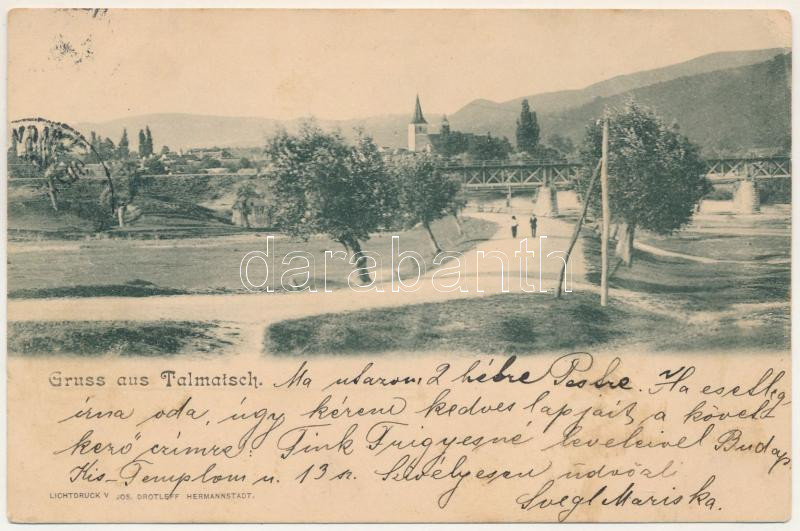 darabanth
Gruss aus Talmatsch.
Ma utazom 2 hétre Pestre. Ha esetleg
írna oda, úgy kérem kedves lapjait a követ
kező czímre: Fink Frigyesné leveleivel Budap
Kis-Templom u. 13 sz. Szívélyesen üdvözli
Svegl Mariska.
LICHTDRUCK V. JOS. DROTLEFF HERMANNSTADT.